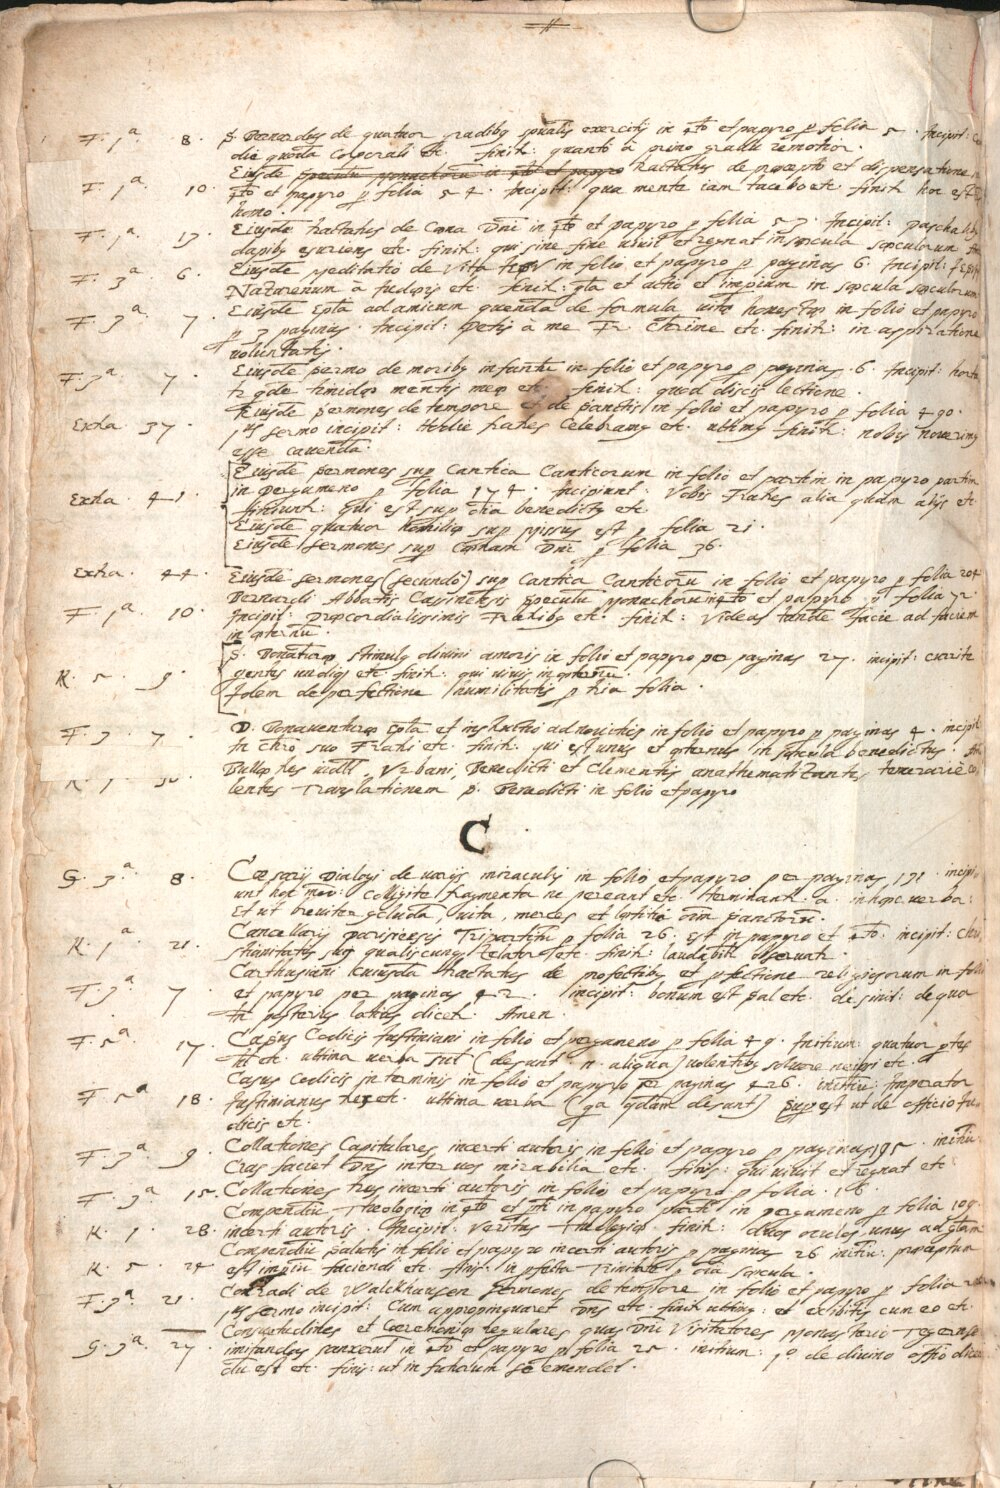 F. 1ª 8. S. Bernardus de quatuor gradibq spualis exercitij in 4to et papyro p folia 5. Incipit: Cu
die quada corporali etc. finit: quanto à primo gradu remotior.
Eiusde speculu monachoru in 4to et papyro tractatus de praecepto et dispensatione in
F. 1ª 10. 4to et papyro p folia 54. Incipit: qua mente iam tacebo etc. finit hoc est
homo.
F. 1ª 13. Eiusde tractatus de Coena Dni in 4to et papyro p folia 53. Incipit: paschalibq
dapibq esuriens etc. finit: qui sine fine uiuit et regnat in saecula saeculorum
F. 3ª 6. Eiusde Meditatio de Vita in folio et papyro p paginas 6. Incipit: Jesum
Nazarenum à Iudaeis etc. finit: gla et actio et impium in saecula saeculorum.
F. 3ª 7. Eiusde Epla ad amicum quenda de formula uitae honestae in folio et papyro
p 3 paginas. Incipit: Petis à me Fr. Charme etc. finit: in aspiratione
voluntatis.
F. 3ª 7. Eiusde sermo de moribq infantu in folio et papyro p paginas 6. Incipit: horta
tr qde timidae mentis meae etc. finit: quod discis lectione.
Eiusde sermones de tempore et de sanctis in folio et papyro p folia 490.
Extra 37. 1us sermo incipit: Hodie fratres celebramq etc. ultimq finit: nobis noverimq
esse cauenda.
Eiusde sermones sup Cantica Canticorum in folio et partim in papyro partim
in pergameno p folia 174. Incipiunt: Vobis Fratres alia quam alijs etc.
Extra 41. finiunt: qui est sup oia benedictq etc.
Eiusde quatuor homiliae sup Missus est p folia 21.
Eiusde sermones sup Coenam Dni p folia 36.
Extra. 44. Eiusde sermones (secundo) sup Cantica Canticoru in folio et papyro p folia 204
Bernardi Abbatis Cassinensis speculu Monachoru in 4to et papyro p folia 72.
F. 1ª 10. Incipit: praecordialissimis Fratribq etc. finit: Videas tande facie ad faciem
in aeternu.
S. Bonaventurae stimulq divini amoris in folio et papyro per paginas 27. incipit: currite
K. 5. 9. gentes undiqq etc. finit: qui uiuis in aeternu.
Jdem de perfectione humilitatis p tria folia.
F. 3. 7. D. Bonaventurae epla et instructio ad nouitios in folio et papyro p paginas 4. incipit:
In Chro suo Fratri etc. finit: qui est unus et aeternus in saecula benedictus.
Bullae tres, Vrbani, Benedicti et Clementis anathematizantes temerarie co
lentes Translationem S. Benedicti in folio et papyro
C
G. 3.ª 8. Caesarij Dialogi de uarijs miraculis in folio et papyro per paginas 171. incipi
unt hoc mo: Colligite fragmenta ne pereant etc. terminant.a. in haec uerba:
Et ut breuiter coluda, uita, merces et laetitia oim sanctoru.
K. 1ª 21. Cancellarij parisiensis Tripartitu p folia 26. est in papyro et 4to. incipit: Chri
stianitatis suae qualiscunq Zelator etc. finit: laudabilr obseruat.
Carthusiani cuiusda tractatus de profectibq et pfectione religiosorum in folio
F. 3ª. 7. et papyro per paginas 42. incipit: bonum est sal etc. desinit: de qua
In posterius latius dicet. Amen.
F. 5ª. 17. Casus Codicis Justiniani in folio et pergameno p folia 49. Initium: quatuor ptes
etc. ultima uerba sut (desunt n. aliqua) uolentibq soluere etc.
Casus Codicis in terminis in folio et papyro per paginas 426. initiu: Imperator
F. 5ª 18. Justinianus rex etc. ultima uerba (qa qdam desunt) sup est ut de officio Ju
dicis etc.
F. 3ª 9. Collationes Capitulares incerti autoris in folio et papyro p paginas 195. initiu:
Cras faciet Dns inter uos mirabilia etc. finis: qui uiuit et regnat etc.
F. 3ª 15. Collationes tres incerti autoris in folio et papyro p folia. 16.
Compendiu Theologiae in 4to et ptim in papyro ptim in pergameno p folia 109.
K. 1. 28. incerti autoris. Incipit: Veritas Theologiae finit: duos oculos, unus ad glam
Compendiu salutis in folio et papyro incerti autoris p paginas 26 initiu: praeceptum
K. 5. 24 est impiu faciendi etc. finis: in pfecta Trinitate p oia saecula.
F. 3ª. 21. Conradi de Walckhausen sermones de tempore in folio et papyro p folia
1us sermo incipit: Cum appropinquaret Dns etc. finit ultimq: et exibitis cum eo etc.
Consuetudines et Caeremoniae regulares quas Dni Visitatores Monasterio Tegernse
G. 3ª. 27. imitandas sanxerunt in 4to et papyro p folia 25. initium: 1o de divino offo dice
du est etc. finis: ut in futurum se emendet.